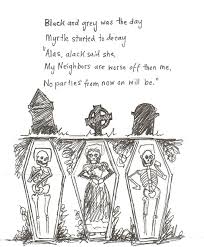 Black and grey was the day
Myrtle started to decay
"Alas, alack said she,
My Neighbors are worse off then me,
No parties from now on will be."